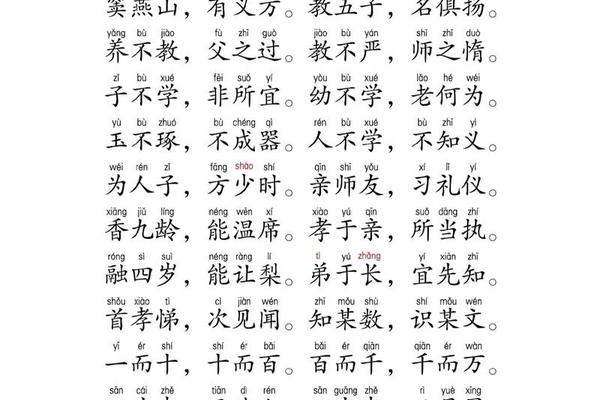 窦燕山，有义方。教五子，名俱扬。
yǎng bù jiào fù zhī guò jiào bù yán shī zhī duò
养不教，父之过。教不严，师之惰。
zǐ bù xué fēi suǒ yí yòu bù xué lǎo hé wéi
子不学，非所宜。幼不学，老何为。
yù bù zhuó bù chéng qì rén bù xué bù zhī yì
玉不琢，不成器。人不学，不知义。
wéi rén zǐ fāng shào shí qīn shī yǒu xí lǐ yí
为人子，方少时。亲师友，习礼仪。
xiāng jiǔ líng néng wēn xí xiào yú qīn suǒ dāng zhí
香九龄，能温席。孝于亲，所当执。
róng sì suì néng ràng lí tì yú zhǎng yí xiān zhī
融四岁，能让梨。弟于长，宜先知。
shǒu xiào tì cì jiàn wén zhī mǒu shù shí mǒu wén
首孝悌，次见闻。知某数，识某文。
yī ér shí shí ér bǎi bǎi ér qiān qiān ér wàn
一而十，十而百。百而千，千而万。
sān cái zhě tiān dì rén sān guāng zhě rì yuè xīng